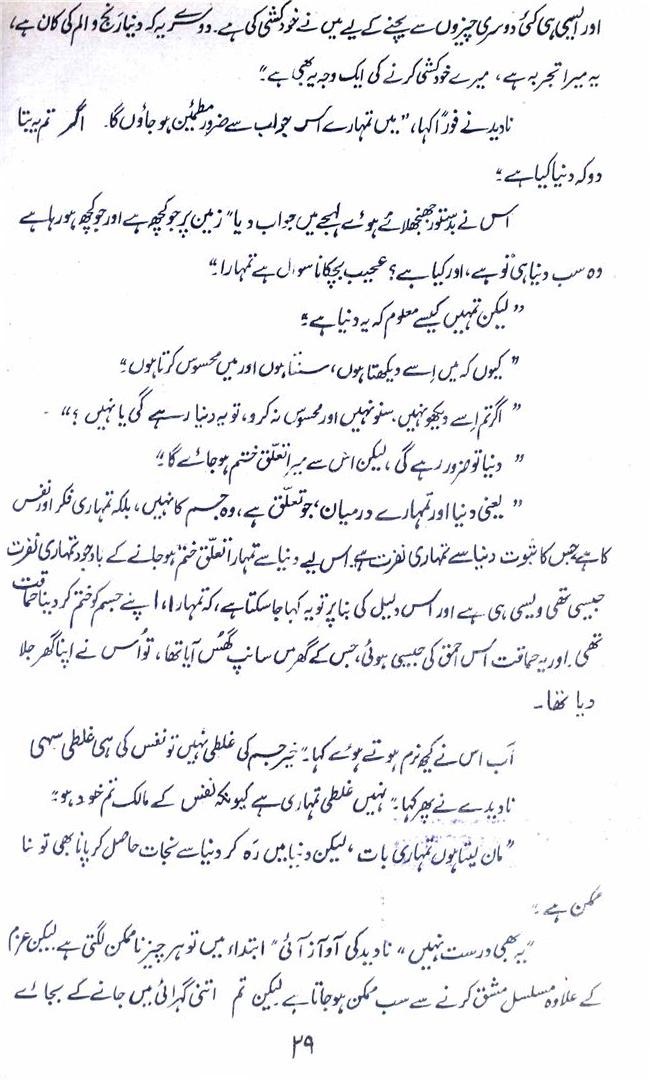 اور ایسی ہی کئی دوسری چیزوں سے بچنے کے لیے میں نے خودکشی کی ہے۔ دوسرے یہ کہ دنیا رنج و الم کی کان ہے،
یہ میرا تجربہ ہے، میرے خودکشی کرنے کی ایک وجہ یہ بھی ہے۔"
نادید نے فوراً کہا، "میں تمہارے اس جواب سے ضرور مطمئین ہو جاؤں گا۔ اگر تم یہ بتا
دو کہ دنیا کیا ہے۔"
اس نے بدستور جھنجھلائے ہوئے لہجے میں جواب دیا "زمین پر جو کچھ ہے اور جو کچھ ہو رہا ہے
وہ سب دنیا ہی تو ہے، اور کیا ہے؟ عجیب بچکانا سوال ہے تمہارا۔"
"لیکن تمہیں کیسے معلوم کہ یہ دنیا ہے۔"
"کیوں کہ میں اِسے دیکھتا ہوں، سنتا ہوں اور میں محسوس کرتا ہوں۔"
"اگر تم اِسے دیکھو نہیں، سنو نہیں اور محسوس نہ کرو، تو یہ دنیا رہے گی یا نہیں ؟"
"دنیا تو ضرور رہے گی، لیکن اس سے میرا تعلّق ختم ہو جائے گا۔"
"یعنی دنیا اور تمہارے درمیان، جو تعلّق ہے، وہ جسم کا نہیں، بلکہ تمہاری فکر اور نفس
کا ہے جس کا ثبوت دنیا سے تمہاری نفرت ہے۔ اس لیے دنیا سے تمہارا تعلّق ختم ہو جانے کے باوجود تمہاری نفرت
جیسی تھی ویسی ہی ہے اور اس دلیل کی بنا پر تو یہ کہا جا سکتا ہے، کہ تمہارا، اپنے جسم کو ختم کر دینا حماقت
تھی۔ اور یہ حماقت اس احمق کی جیسی ہوئی، جس کے گھر میں سانپ گھُس آیا تھا، تو اُس نے اپنا گھر جلا
دیا تھا۔
اَب اس نے کچھ نرم ہوتے ہوئے کہا۔ "خیر جسم کی غلطی نہیں تو نفس کی ہی غلطی سہی
نادیدے نے پھر کہا۔ "نہیں غلطی تمہاری ہے کیونکہ نفس کے مالک تم خود ہو۔"
"مان لیتا ہوں تمہاری بات، لیکن دنیا میں رَہ کر دنیا سے نجات حاصل کر پانا بھی تو نا
ممکن ہے۔"
"یہ بھی درست نہیں" نادید کی آواز آئی" ابتداء میں تو ہر چیز ناممکن لگتی ہے لیکن عزم
کے علاوہ مسلسل مشق کرنے سے سب ممکن ہو جاتا ہے لیکن تم اتنی گہرائی میں جانے کے بجائے
۲۹